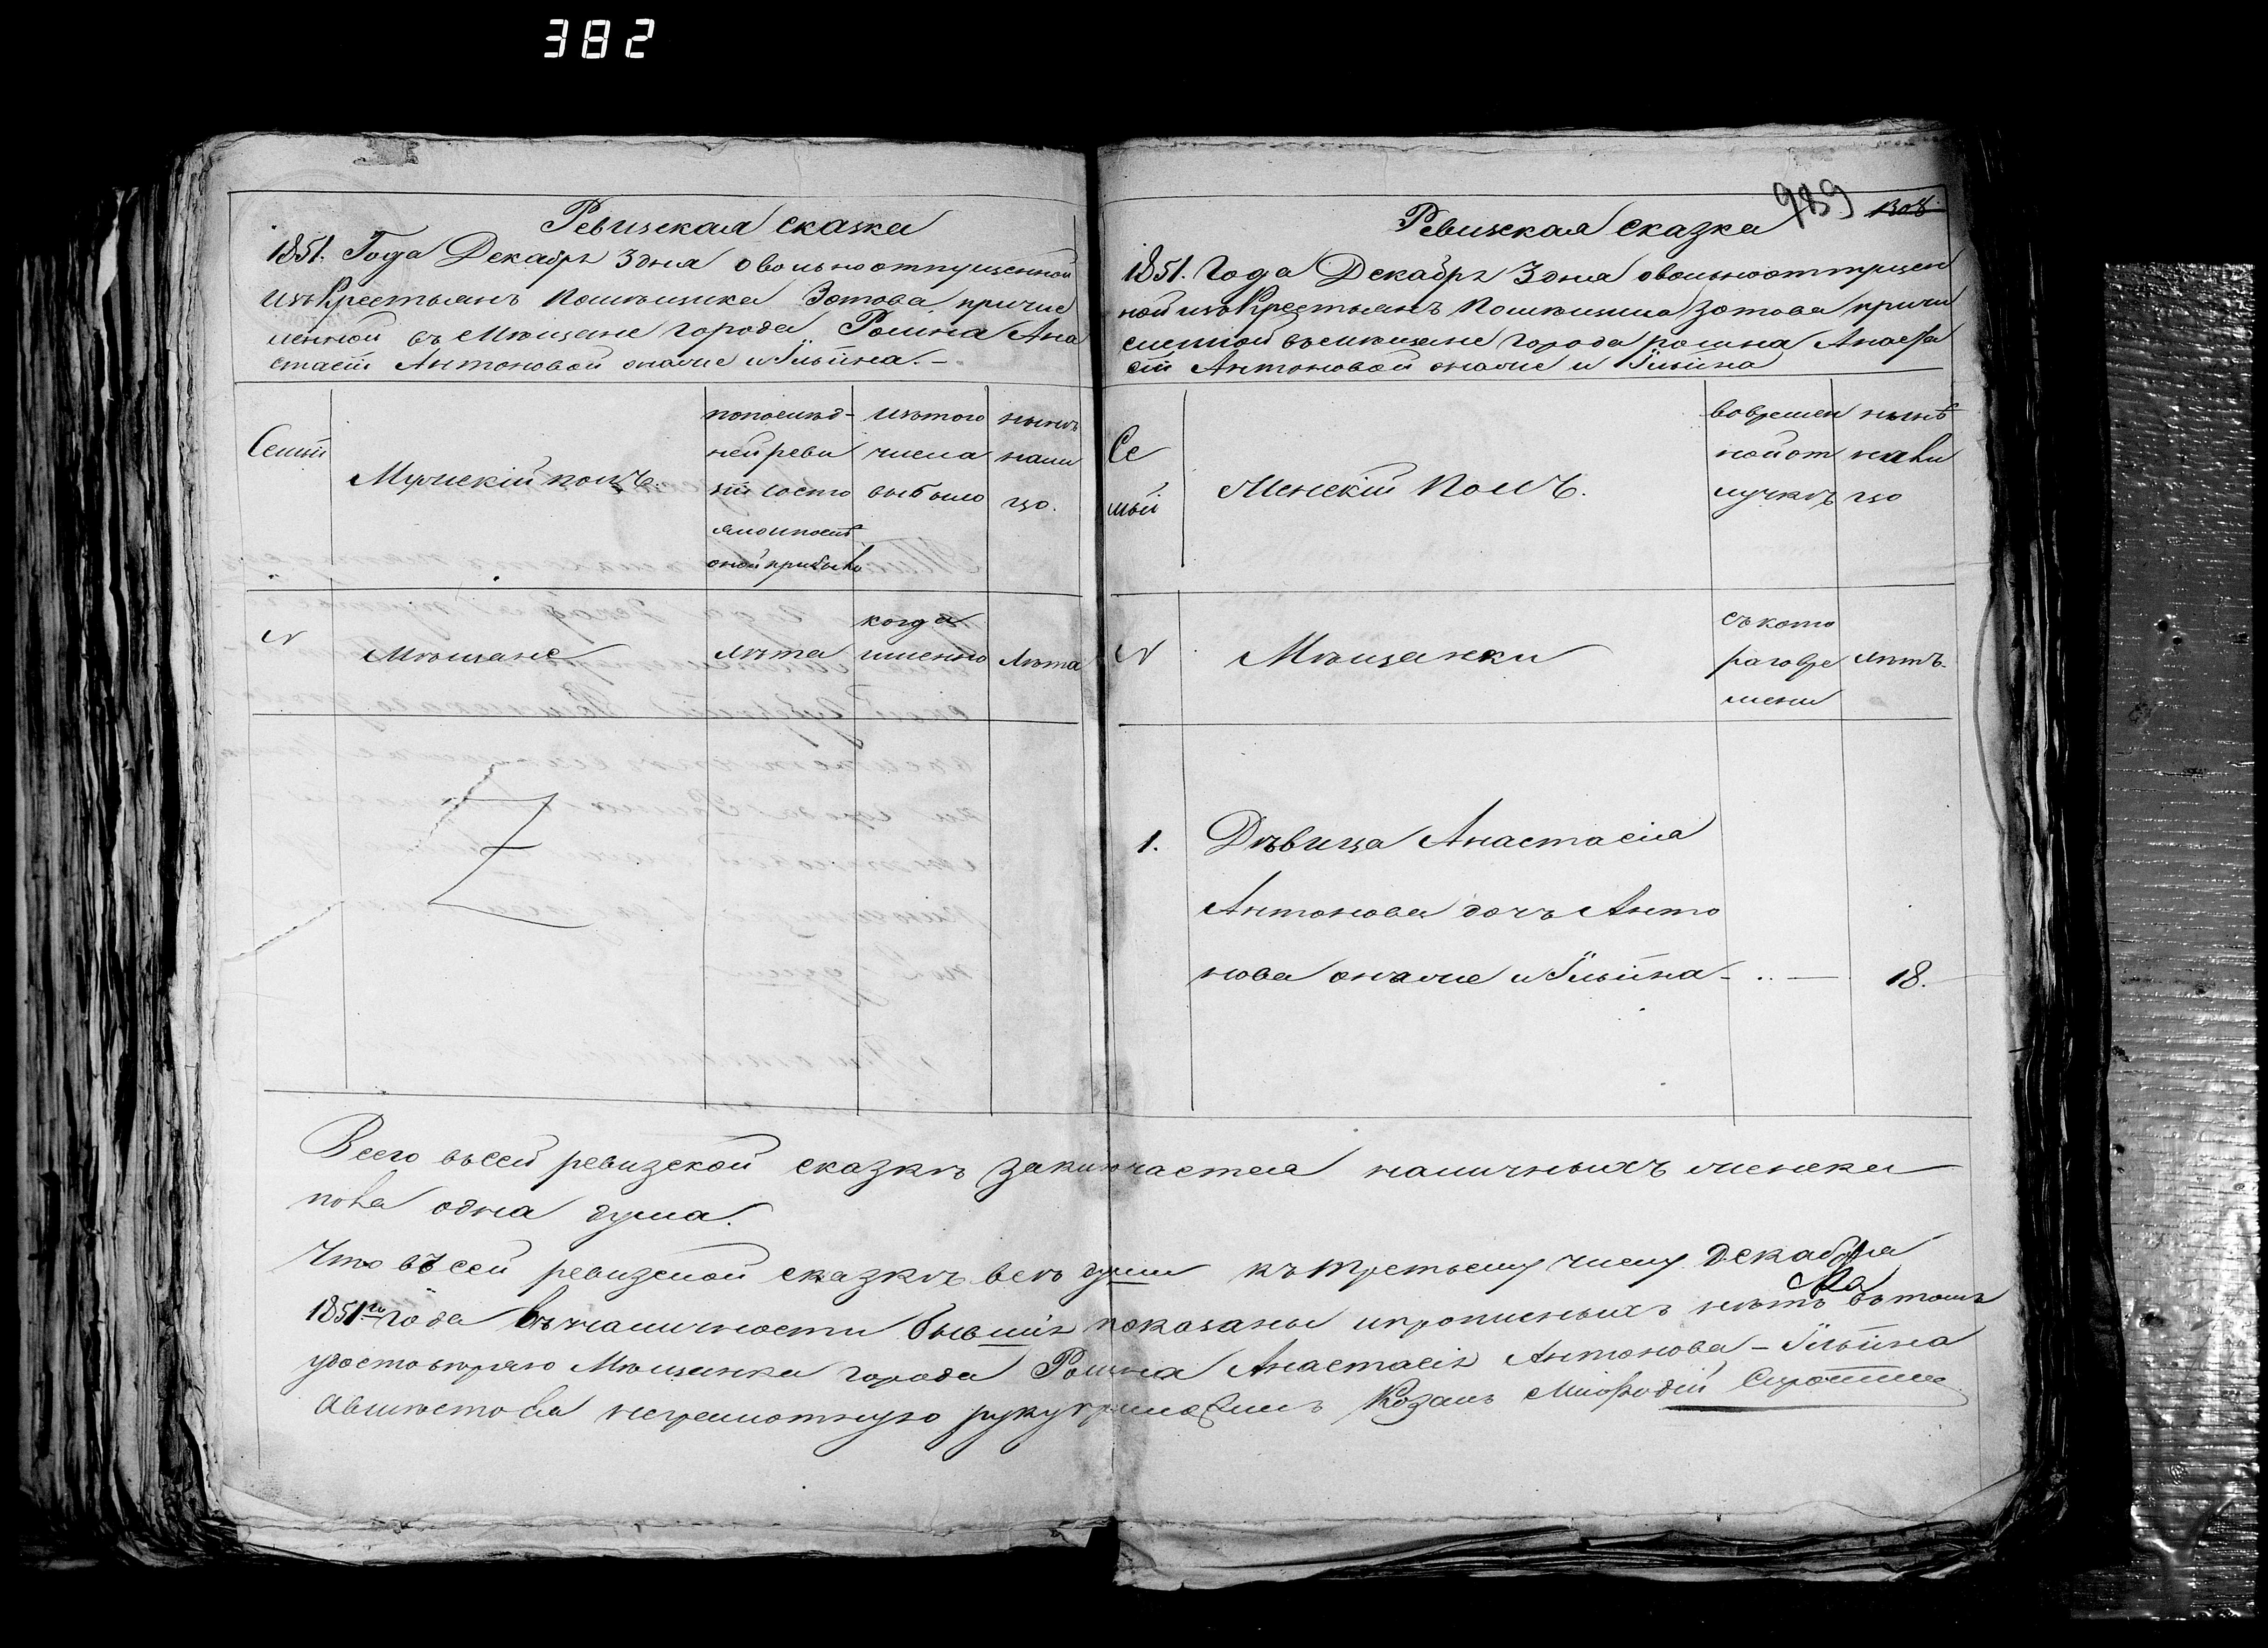 382
Ревизская сказка
1851. Года Декабря 3 дня о вольноотпущенной
изъ Крестьянъ Помѣщика Зотова, причис
ленной въ Мѣщане города Ромна Ана
стасіи Антоновой онаже и Ильина. —
Семьи
Мужескій полъ.
попослѣд-
ней реви
зіи состо
яло и послѣ
оной прибыло
изъ того
числа
выбыло
нынѣ
нали
цо.
N
Мѣщане
лѣта
когда
именно
лѣта
989 1308
Ревизская сказка
1851. Года Декабря 3 дня о вольноотпущен
ной изъ Крестьянъ Помѣщика Зотова причи
сленной въ мѣщане города Ромна Анаста
сіи Антоновой онаже и Ильина
Се
мьи
Женскій полъ.
во времен
ной от
лучкѣ
нынѣ
нали
цо
N
Мѣщанки
съ кото
раго вре
мени
лѣтъ.
1. Дѣвица Анастасія
Антонова дочь Анто
нова онаже и Ильина - .. — 18.
Всего въ сей ревизской сказкѣ заключается наличныхъ женска
пола одна душа.
Что въ сей ревизской сказкѣ всѣ души къ третьему числу Декабря
1851го года въ наличности бывшія показаны и прописныхъ нѣтъ въ томъ
удостовѣряю Мѣщанка города Ромна Анастасія Антонова - Ильина
А вмѣсто ея неграмотную руку приложилъ Козакъ